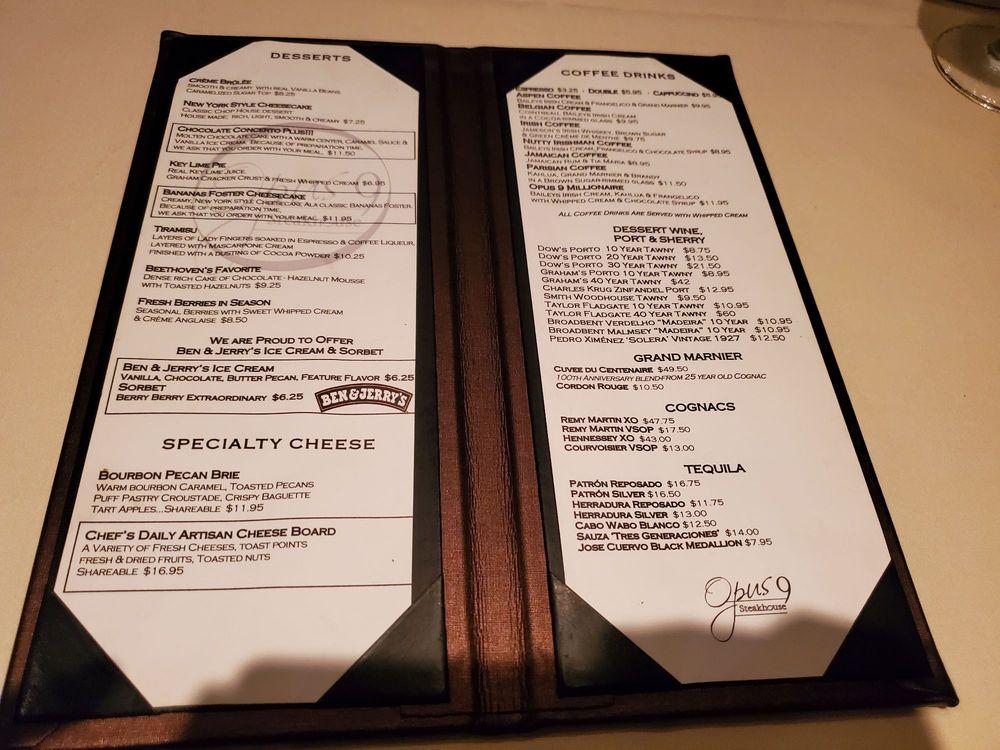 DESSERTS
CRÈME BRÛLÉE
SMOOTH & CREAMY WITH REAL VANILLA BEANS
CARAMELIZED SUGAR TOP $8.25
NEW YORK STYLE CHEESECAKE
CLASSIC CHOP HOUSE DESSERT
HOUSE MADE, RICH, LIGHT, SMOOTH & CREAMY $7.25
CHOCOLATE CONCERTO PLUS!!!
MOLTEN CHOCOLATE CAKE WITH A WARM CENTER, CARAMEL SAUCE &
VANILLA ICE CREAM. BECAUSE OF PREPARATION TIME,
WE ASK THAT YOU ORDER WITH YOUR MEAL. $11.50
KEY LIME PIE
REAL KEY LIME JUICE,
GRAHAM CRACKER CRUST & FRESH WHIPPED CREAM $6.95
BANANAS FOSTER CHEESECAKE
CREAMY, NEW YORK STYLE CHEESECAKE, ALA CLASSIC BANANAS FOSTER.
BECAUSE OF PREPARATION TIME,
WE ASK THAT YOU ORDER WITH YOUR MEAL. $11.95
TIRAMISU
LAYERS OF LADY FINGERS SOAKED IN ESPRESSO & COFFEE LIQUEUR,
LAYERED WITH MASCARPONE CREAM
FINISHED WITH A DUSTING OF COCOA POWDER $10.25
BEETHOVEN'S FAVORITE
DENSE RICH CAKE OF CHOCOLATE - HAZELNUT MOUSSE
WITH TOASTED HAZELNUTS $9.25
FRESH BERRIES IN SEASON
SEASONAL BERRIES WITH SWEET WHIPPED CREAM
& CRÈME ANGLAISE $8.50
WE ARE PROUD TO OFFER
BEN & JERRY'S ICE CREAM & SORBET
BEN & JERRY'S ICE CREAM
VANILLA, CHOCOLATE, BUTTER PECAN, FEATURE FLAVOR $6.25
SORBET
BERRY BERRY EXTRAORDINARY $6.25
BEN & JERRY'S
SPECIALTY CHEESE
BOURBON PECAN BRIE
WARM BOURBON CARAMEL, TOASTED PECANS
PUFF PASTRY CROUSTADE, CRISPY BAGUETTE
TART APPLES...SHAREABLE $11.95
CHEF'S DAILY ARTISAN CHEESE BOARD
A VARIETY OF FRESH CHEESES, TOAST POINTS
FRESH & DRIED FRUITS, TOASTED NUTS
SHAREABLE $16.95
COFFEE DRINKS
ESPRESSO $3.25 · DOUBLE $5.95 · CAPPUCCINO
ASPEN COFFEE
BAILEYS IRISH CREAM & FRANGELICO & GRAND MARNIER $9.95
BELGIAN COFFEE
COINTREAU, BAILEYS IRISH CREAM
IN A COCOA-RIMMED GLASS $9.95
IRISH COFFEE
JAMESON'S IRISH WHISKEY, BROWN SUGAR
& GREEN CRÈME DE MENTHE $9.75
NUTTY IRISHMAN COFFEE
BAILEYS IRISH CREAM, FRANGELICO & CHOCOLATE SYRUP $8.95
JAMAICAN COFFEE
JAMAICAN RUM & TIA MARIA $8.95
PARISIAN COFFEE
KAHLUA, GRAND MARNIER & BRANDY
IN A BROWN SUGAR-RIMMED GLASS $11.50
OPUS 9 MILLIONAIRE
BAILEYS IRISH CREAM, KAHLUA & FRANGELICO
WITH WHIPPED CREAM & CHOCOLATE SYRUP $11.95
ALL COFFEE DRINKS ARE SERVED WITH WHIPPED CREAM
DESSERT WINE,
PORT & SHERRY
DOW'S PORTO 10 YEAR TAWNY $8.75
DOW'S PORTO 20 YEAR TAWNY $13.50
DOW'S PORTO 30 YEAR TAWNY $21.50
GRAHAM'S PORTO 10 YEAR TAWNY $8.95
GRAHAM'S 40 YEAR TAWNY $42
CHARLES KRUG ZINFANDEL PORT $12.95
SMITH WOODHOUSE TAWNY $9.50
TAYLOR FLADGATE 10 YEAR TAWNY $10.95
TAYLOR FLADGATE 40 YEAR TAWNY $60
BROADBENT VERDELHO "MADEIRA" 10 YEAR $10.95
BROADBENT MALMSEY "MADEIRA" 10 YEAR $10.95
PEDRO XIMÉNEZ 'SOLERA' VINTAGE 1927 $12.50
GRAND MARNIER
CUVEE DU CENTENAIRE $49.50
100TH ANNIVERSARY BLEND FROM 25 YEAR OLD COGNAC
CORDON ROUGE $10.50
COGNACS
REMY MARTIN XO $47.75
REMY MARTIN VSOP $17.50
HENNESSEY XO $43.00
COURVOISIER VSOP $13.00
TEQUILA
PATRÓN REPOSADO $16.75
PATRÓN SILVER $16.50
HERRADURA REPOSADO $11.75
HERRADURA SILVER $13.00
CABO WABO BLANCO $12.50
SAUZA 'TRES GENERACIONES' $14.00
JOSE CUERVO BLACK MEDALLION $7.95
Opus 9
Steakhouse